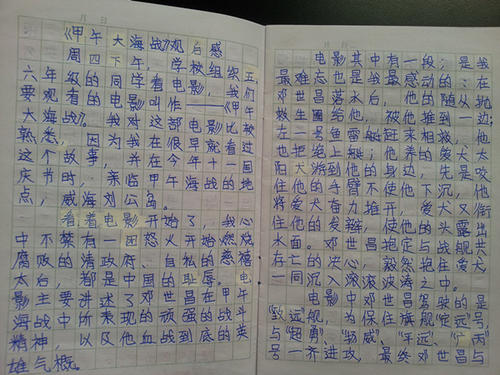 月 日
《甲午大海战》观后感
周四下午，学校组织五、
六年级的同学看电影，我们
要观看的电影叫作——《甲午
大海战》。我对这部电影比较
熟悉，因为我在很早就看过
这个故事，并在今年十一国
庆节时，亲临甲午海战的地
点，威海刘公岛。
看着电影开始了，我心
中不禁有一团怒火开始燃烧
腐败的清政府、自私的慈禧
太后，都是中国的耻辱。电
影主要讲述了邓世昌在甲午
海战中所表现的顽强的战斗
精神，以及他血战到底的英
雄气概。
月 日
电影其中有一段；是我
最难忘也是我最感动的：在
邓世昌落水后，他的随从抛
救生圈给他，被他推到一边；
在一号鱼雷艇赶来相救，他
也拒绝上艇；他养的爱犬太
阳犬游到他的身边，先是咬
住他的手臂不使他下沉，他
将爱犬奋力推开，爱犬又衔
住他的发辫，使他的头露出
水面。邓世昌抱定与战舰共
存亡的决心，毅然抱住爱犬
一同沉入滚滚波涛之中。
电影中邓世昌驾驶的是
“致远”舰，为保住旗舰“定远”号，
与“超勇”、“扬威”、“平远”、“广丙”
号一齐进攻，最终邓世昌与